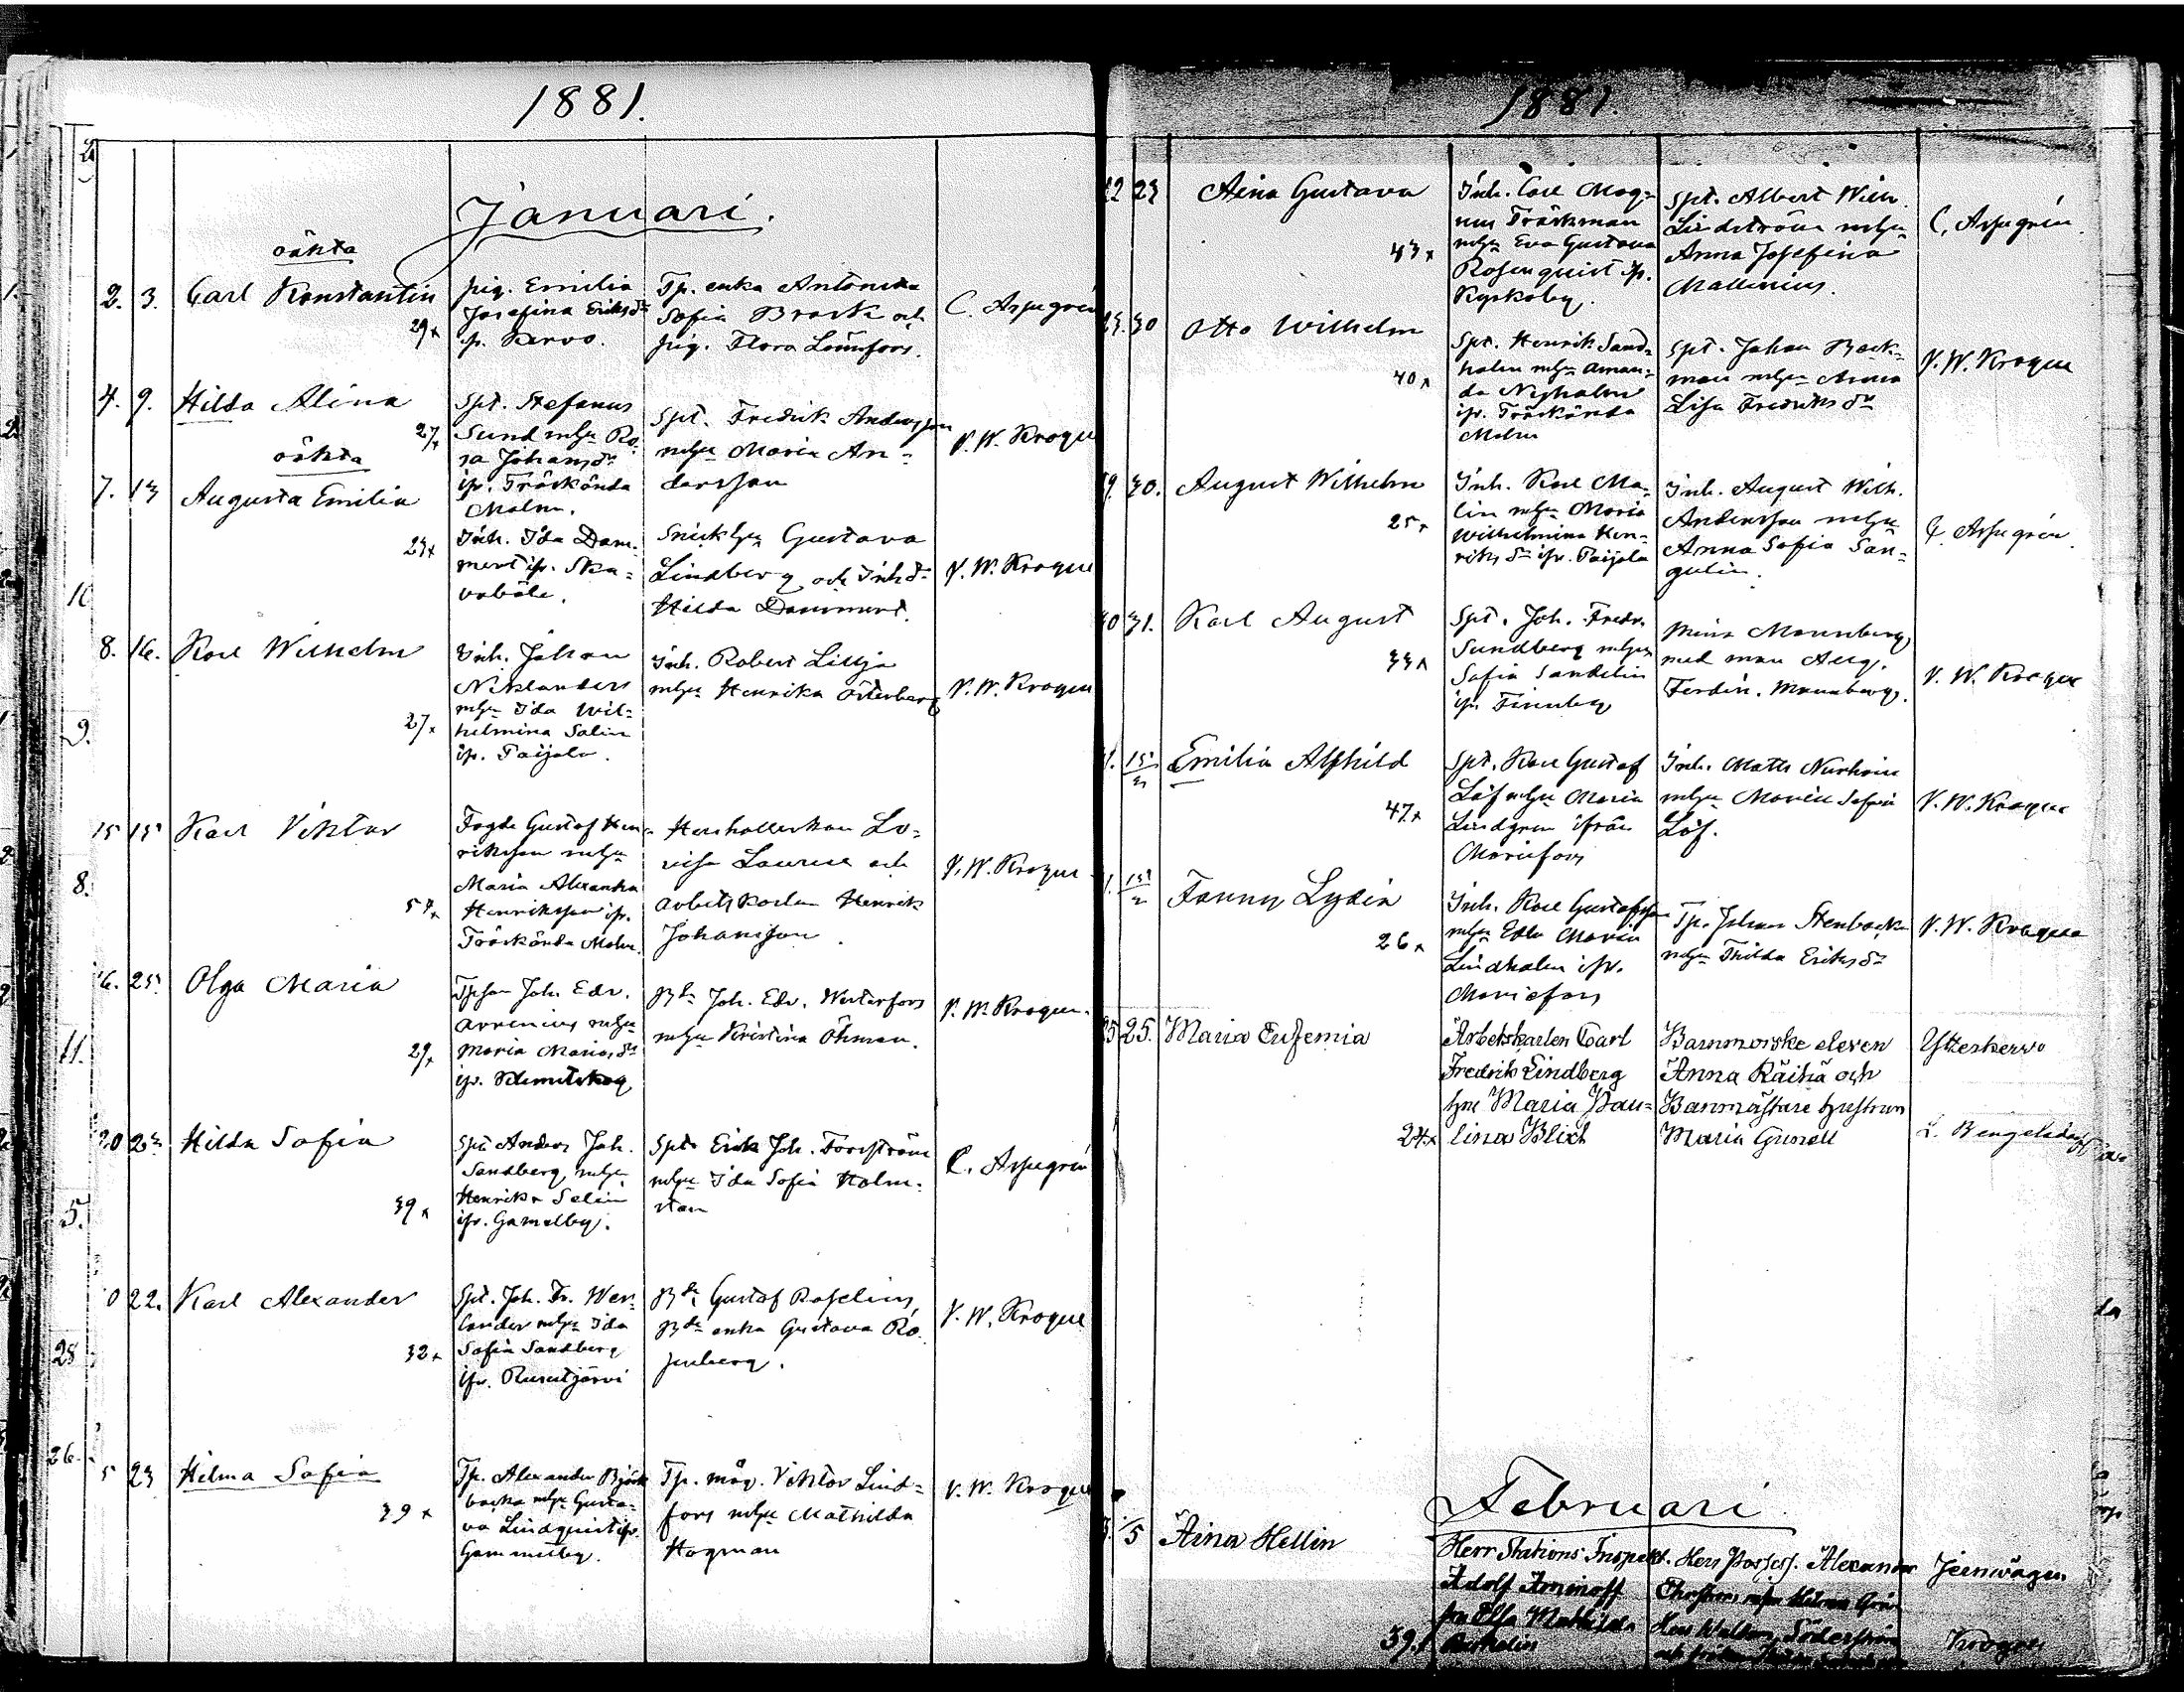 1881.
Januari.
oäkta
2. 3. Carl Konstantin
29x
pig. Emilia
Josefina Eriksdr
fr. Kervo.
Tp. enka Antonetta
Sofia Brask och
pig. Flora Lönnfors.
C. Aspegrén
4. 9. Hilda Alina
27x
Spt. Stefanus
Sund mhu Ro-
sa Johansdr
ifr. Träskända
Malm.
Spt. Fredrik Andersson
mhu Maria An-
dersson
V. W. Krogen
oäkta
7. 13 Augusta Emilia
23x
Inh. Ida Dam-
mert ifr. Ska-
vaböle.
Gustava
Lindberg och Inhdr
Hilda Dammert.
V. W. Krogen
8. 16. Karl Wilhelm
27x
Inh. Johan
Niklander
mhu Ida Wil-
helmina Salin
ifr. Paijala.
Inh. Robert Lillja
mhu Henrika Österberg
V. W. Krogen
15 15 Karl Viktor
Fogde Gustaf Hen-
riksson mhu
Maria Alexandra
Henriksson ifr.
Träskända Malm.
Lo-
visa Laurell och
arbetskarlen Henrik
Johansson.
V. W. Krogen
16. 25. Olga Maria
29x
Tpson Joh. Edv.
Arrenius mhu
Maria Mariasdr
ifr. Klemetskog
Bdn Joh. Edv. Westerfors
mhu Kristina Öhman.
V. W. Krogen.
20 23 Hilda Sofia
39x
Spt Anders Joh.
Sandberg mhu
Henrika Selin
ifr. Gamelby.
Spt. Erik Joh. Forsström
mhu Ida Sofia Holm-
sten
C. Aspegrén
22. Karl Alexander
32x
Spt. Joh. Fr. Wer-
lander mhu Ida
Sofia Sandberg
ifr. Rusutjärvi
Bdn Gustaf Roselius,
Bde enka Gustava Ro-
senberg.
V. W. Krogen
23 Hilma Sofia
39x
Tp. Alexander Björk-
backa mhu Gusta-
va Lindquist ifr.
Gammelby.
Tp. måg. Viktor Lind-
fors mhu Mathilda
Hagman
V. W. Krogen
1881.
22 23 Aina Gustava
43x
Inh. Carl Mag-
nus Träskman
mhu Eva Gustava
Rosenquist ifr.
Kyrkoby.
Spt. Albert Wilh.
Lindström mhu
Anna Josefina
Mallenius.
C. Aspegrén.
30 Otto Wilhelm
40x
Spt. Henrik Sand-
holm mhu Aman-
da Nyholm
ifr. Träskända
Malm
Spt. Johan Back-
man mhu Anna
Lisa Fredriksdr
V. W. Krogen
30. August Wilhelm
25x
Inh. Karl Ma-
lin mhu Maria
Wilhelmina Hen-
riksdr ifr. Paijala
Inh. August Wilh.
Andersson mhu
Anna Sofia San-
gelin.
C. Aspegrén.
31. Karl August
33x
Spt. Joh. Fredr.
Sundberg mhu
Sofia Sandelin
ifr. Finnby
Mina Mannberg
med man Aug.
Ferdin. Mannberg.
V. W. Krogen
15/2 Emilia Alfhild
47x
Spt. Karl Gustaf
Löf mhu Maria
Lindgren ifrån
Mariefors
Inh. Matts Nurhoin
mhu Maria Sofia
Löf.
V. W. Krogen
15/2 Fanny Lydia
26x
Inh. Karl Gustafsson
mhu Edla Maria
Lindholm ifr.
Mariefors
Tp. Johan Stenbacka
mhu Thilda Eriksdr
V. W. Krogen
25. Maria Eufemia
24x
Arbetskarlen Carl
Fredrik Lindberg
hu Maria Pau-
lina Blixt
Barnmorske eleven
Anna Räihä och
Banmästare hustrun
Maria Gunell
Ytterkervo
L. Bengelsdorff
Februari
5 Aina Hellin
39.
Herr Stations Inspekt.
Adolf Aminoff
fru Elsa Mathilda
Herr Possess. Alexander
Herr Walter Söderström
Jernvägen
Krogen